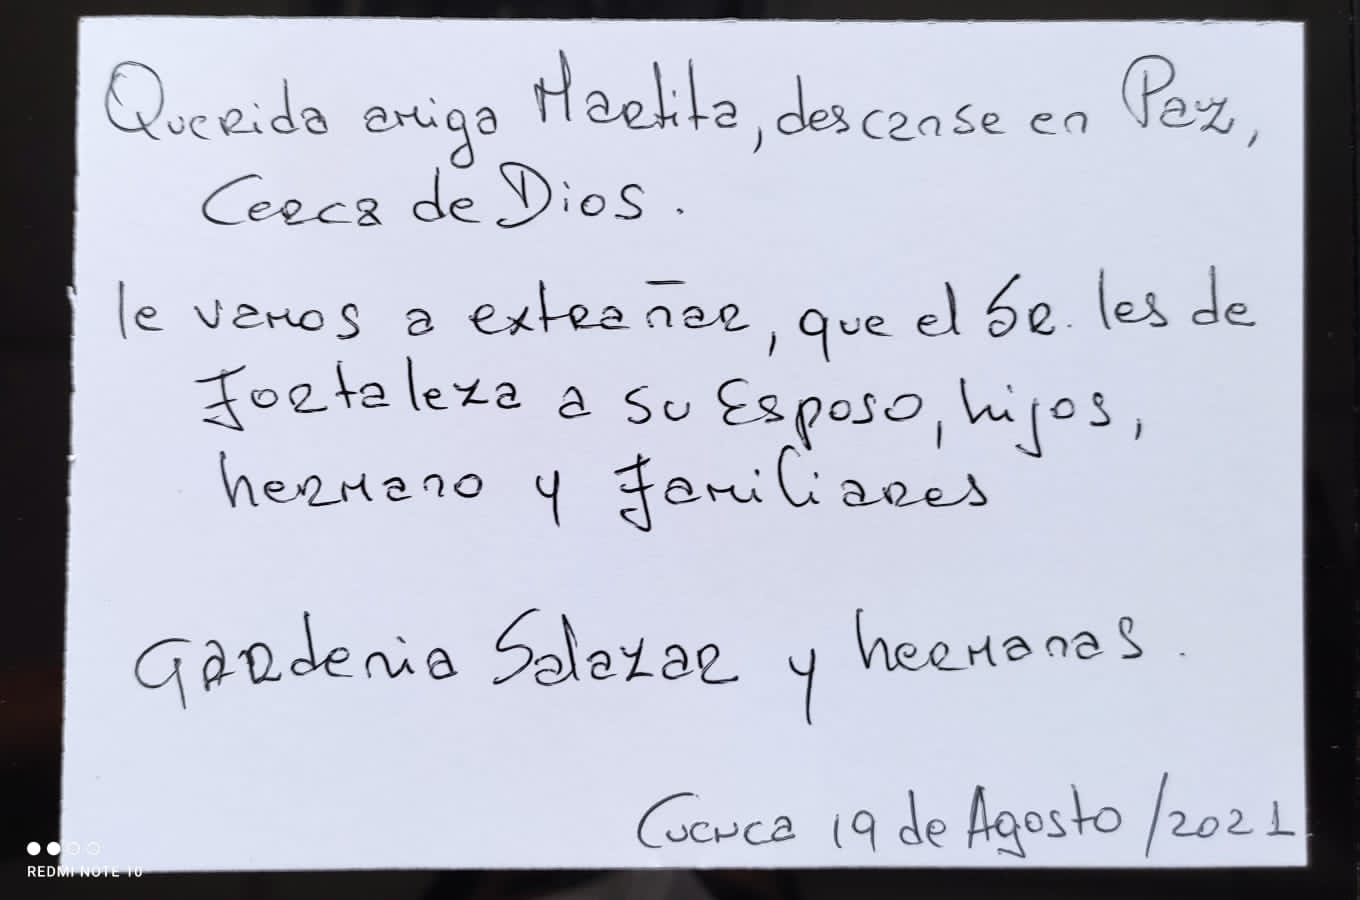 Querida amiga Martita, descanse en Paz,
Cerca de Dios.
le vamos a extrañar, que el Sr. les de
fortaleza a su Esposo, hijos,
hermano y familiares
Gardenia Salazar y hermanas.
Cuenca 19 de Agosto/2021
REDMI NOTE 10